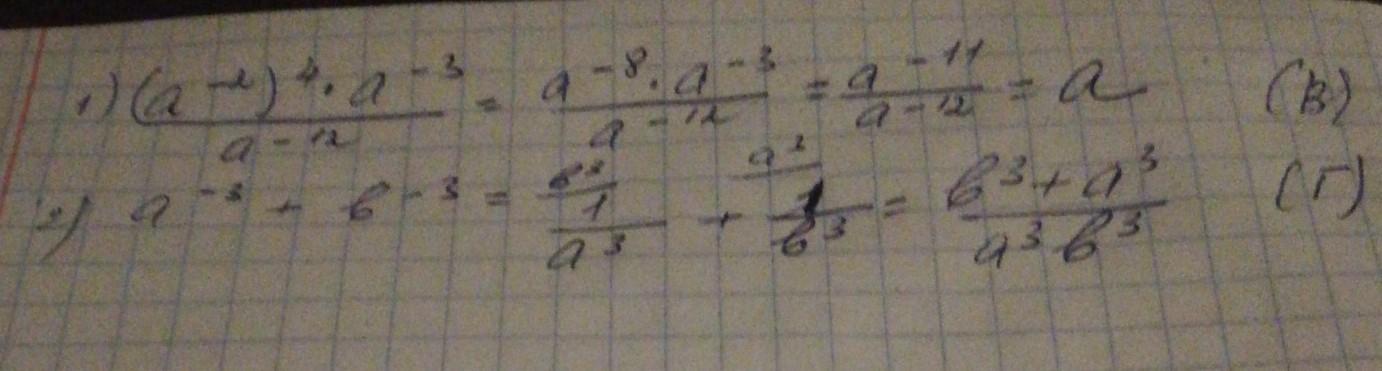 1) (a⁻²)⁴ · a⁻³ / a⁻¹² = a⁻⁸ · a⁻³ / a⁻¹² = a⁻¹¹ / a⁻¹² = a (В)
2) a⁻³ + в⁻³ = в³⁄ 1/a³ + a³⁄ 1/в³ = в³ + a³ / a³в³ (Г)